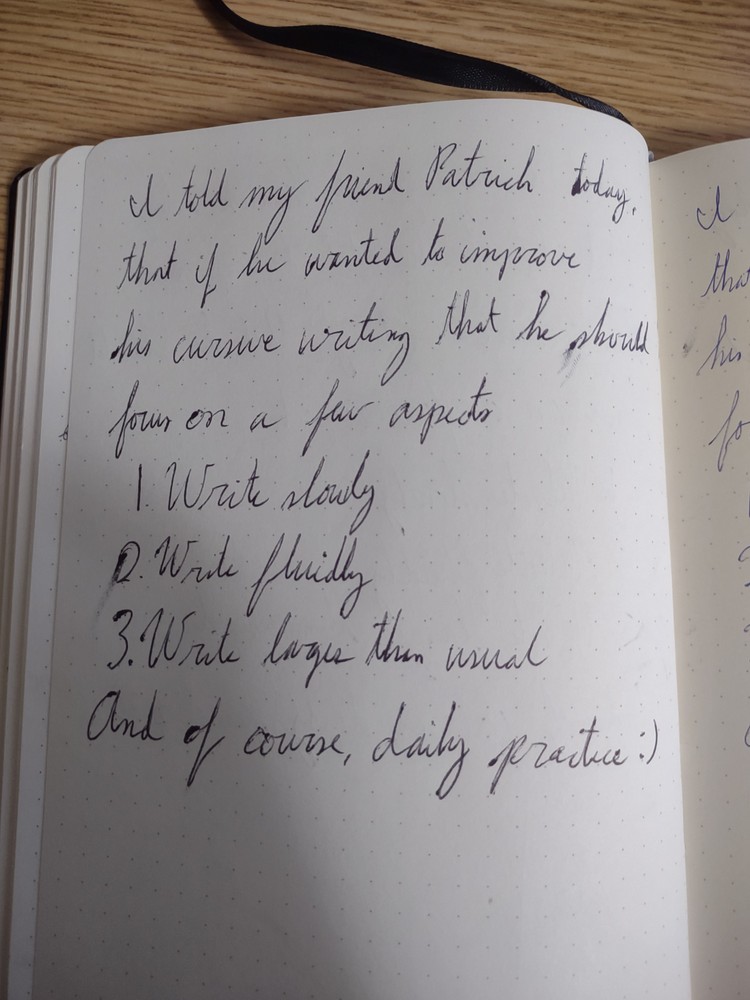 I told my friend Patrick today,
that if he wanted to improve
his cursive writing that he should
focus on a few aspects
1. Write slowly
2. Write fluidly
3. Write larger than usual
And of course, daily practice :)
I
tha
his
fo